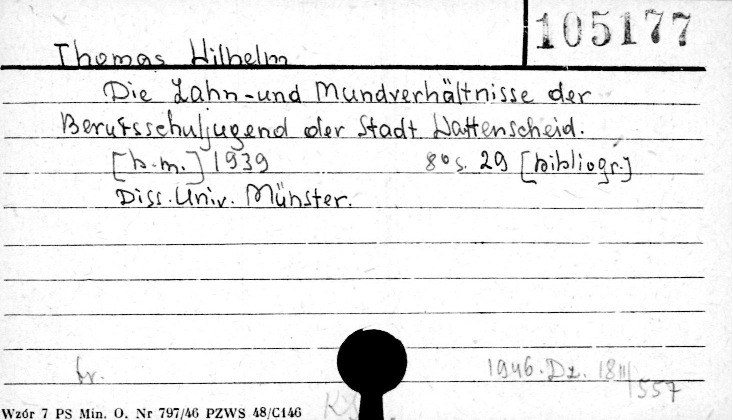 105177
Thomas Wilhelm
Die Zahn-und Mundverhältnisse der
Berufsschuljugend der Stadt Wattenscheid.
[b.m.] 1939 8° s. 29 [bibliogr.]
Diss. Univ. Münster.
fr. 1946. Dz. 18III/557
Wzór 7 PS Min. O. Nr 797/46 PZWS 48/C146